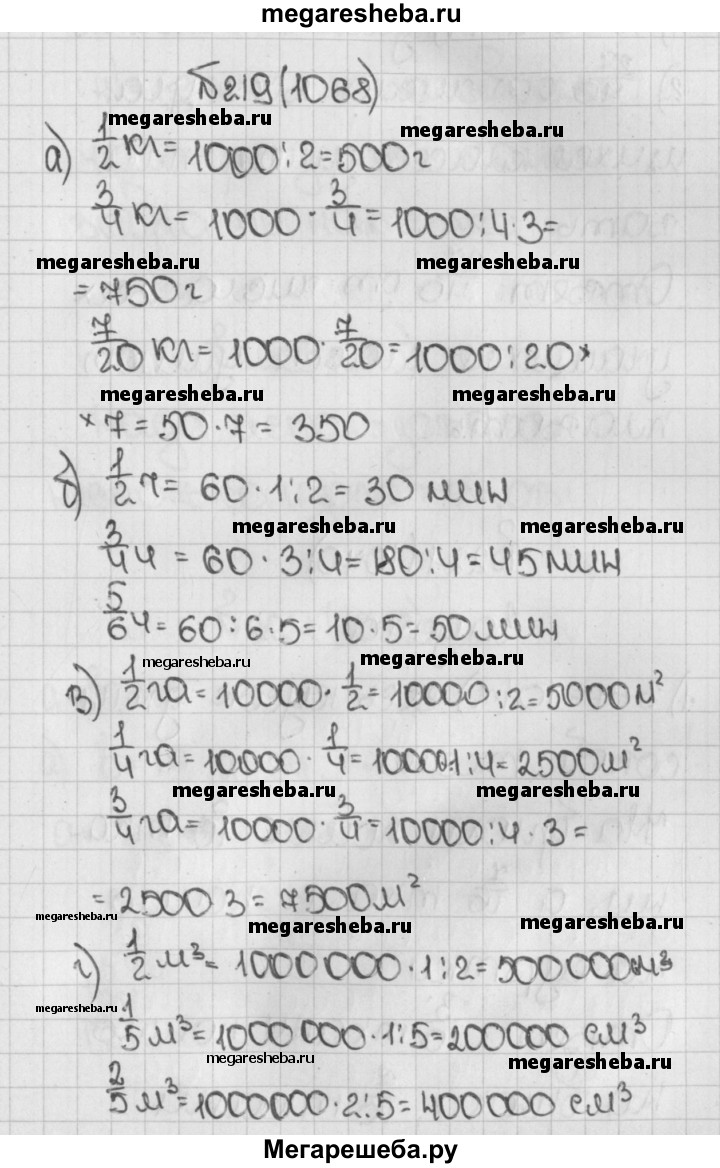 megaresheba.ru
№219(1068)
megaresheba.ru
megaresheba.ru
а) 1/2 кг = 1000 : 2 = 500 г
3/4 кг = 1000 · 3/4 = 1000 : 4 · 3 =
megaresheba.ru
megaresheba.ru
= 750 г
7/20 кг = 1000 · 7/20 = 1000 : 20 ×
megaresheba.ru
megaresheba.ru
× 7 = 50 · 7 = 350
б) 1/2 ч = 60 · 1 : 2 = 30 мин
megaresheba.ru
megaresheba.ru
3/4 ч = 60 · 3 : 4 = 180 : 4 = 45 мин
megaresheba.ru
5/6 ч = 60 : 6 · 5 = 10 · 5 = 50 мин
megaresheba.ru
megaresheba.ru
в) 1/2 га = 10000 · 1/2 = 10000 : 2 = 5000 м²
1/4 га = 10000 · 1/4 = 10000·1 : 4 = 2500 м²
megaresheba.ru
megaresheba.ru
3/4 га = 10000 · 3/4 = 10000 : 4 · 3 =
= 2500 3 = 7500 м²
megaresheba.ru
megaresheba.ru
megaresheba.ru
г) 1/2 м³ = 1000 000 · 1 : 2 = 500 000 см³
megaresheba.ru
1/5 м³ = 1000 000 · 1 : 5 = 200000 см³
megaresheba.ru
megaresheba.ru
2/5 м³ = 1000000 · 2 : 5 = 400 000 см³
Мегарешеба.ру